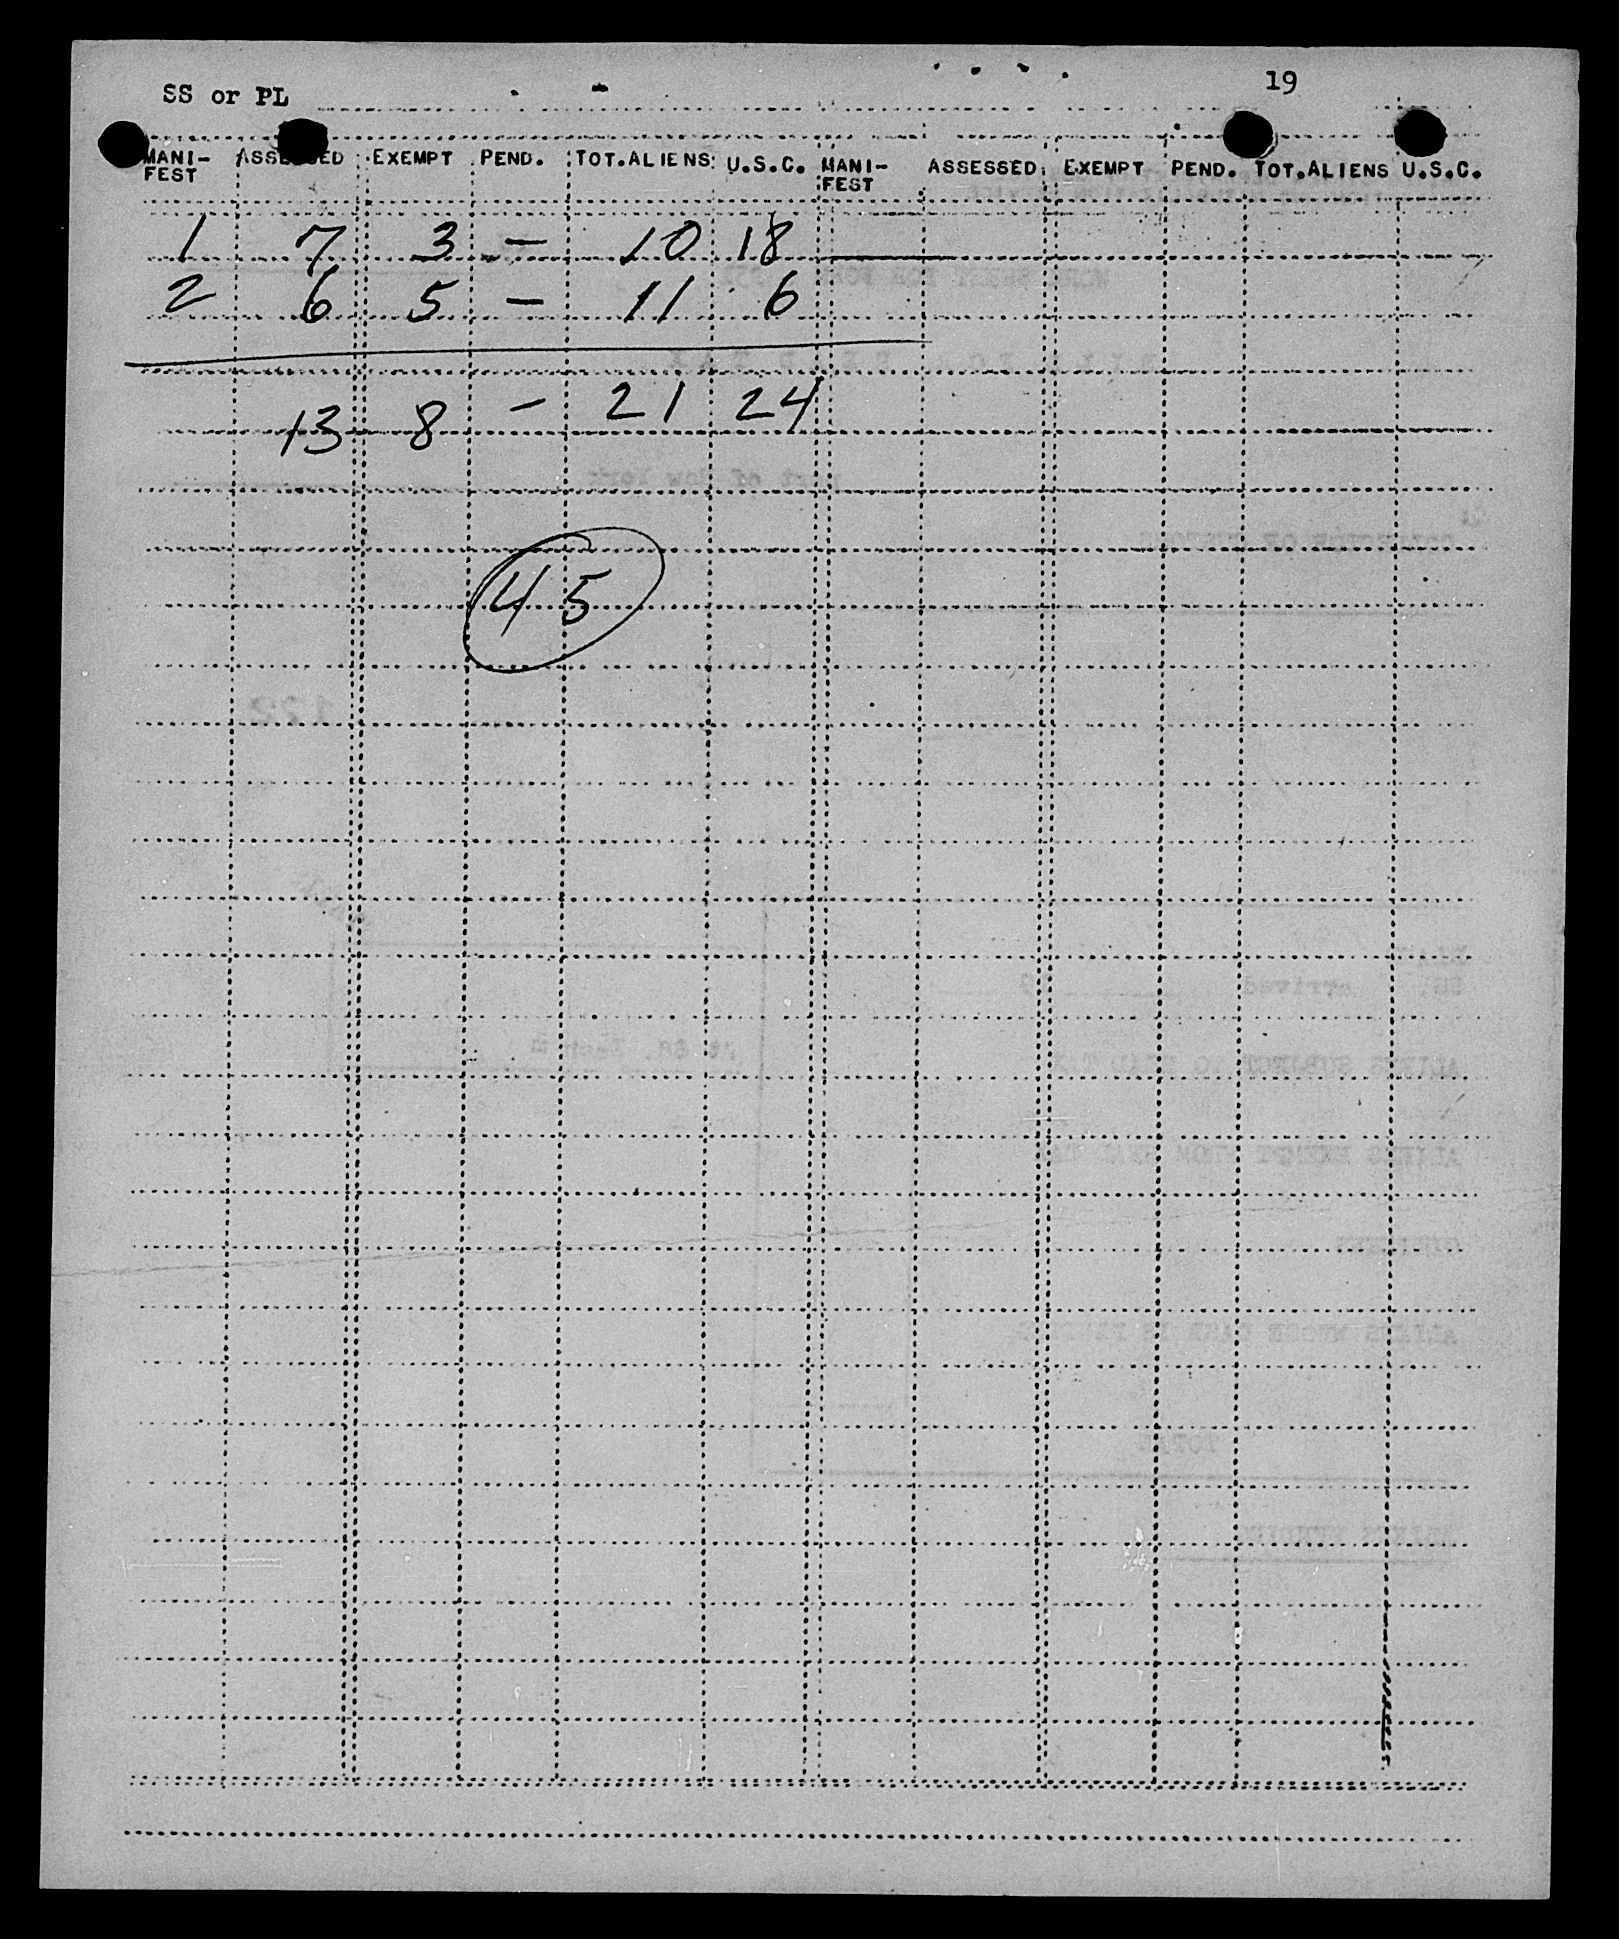 SS or PL 19
MANI-FEST ASSESSED EXEMPT PEND. TOT.ALIENS U.S.C. MANI-FEST ASSESSED EXEMPT PEND. TOT.ALIENS U.S.C.
1 7 3 - 10 18
2 6 5 - 11 6
13 8 - 21 24
45